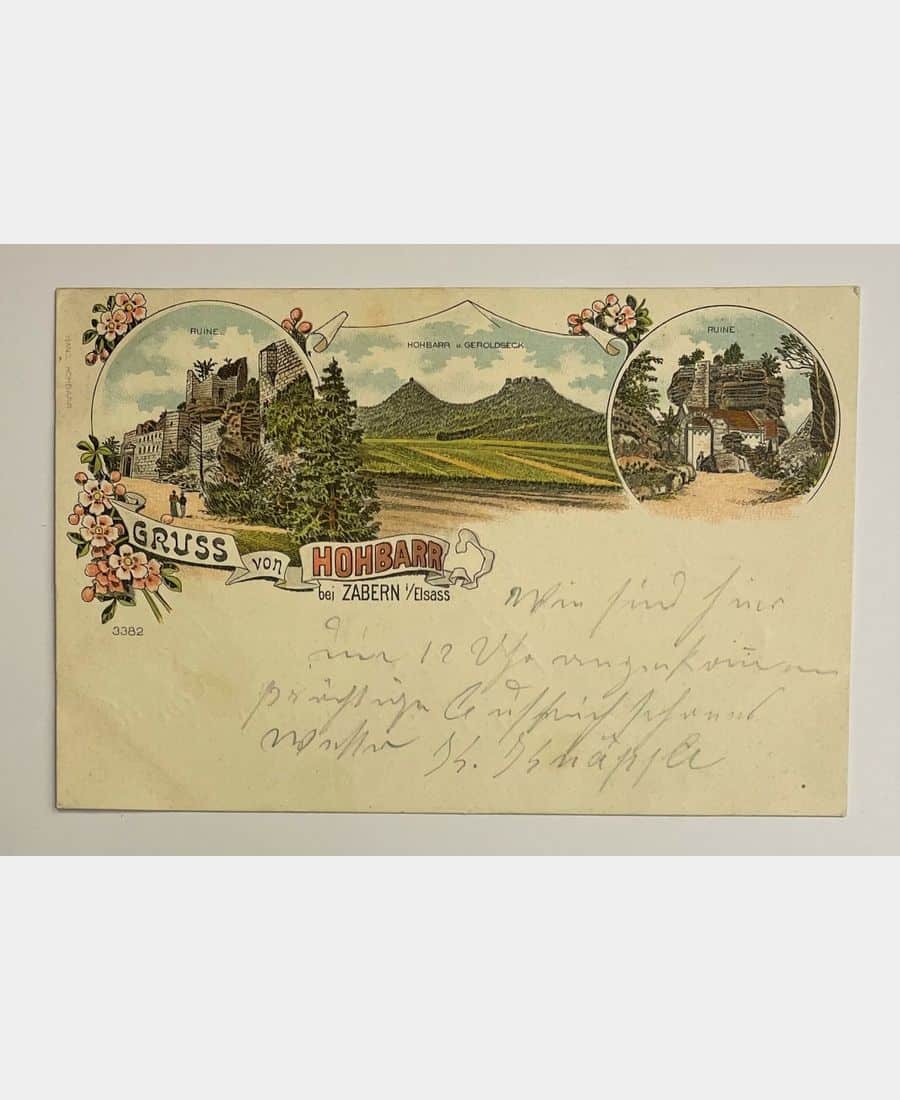 RUINE.
HOHBARR u. GEROLDSECK
RUINE
GRUSS von HOHBARR
bei ZABERN i/Elsass
3382
Wir sind hier
um 12 Uhr angekommen
prächtige Aussicht schönes
Wetter